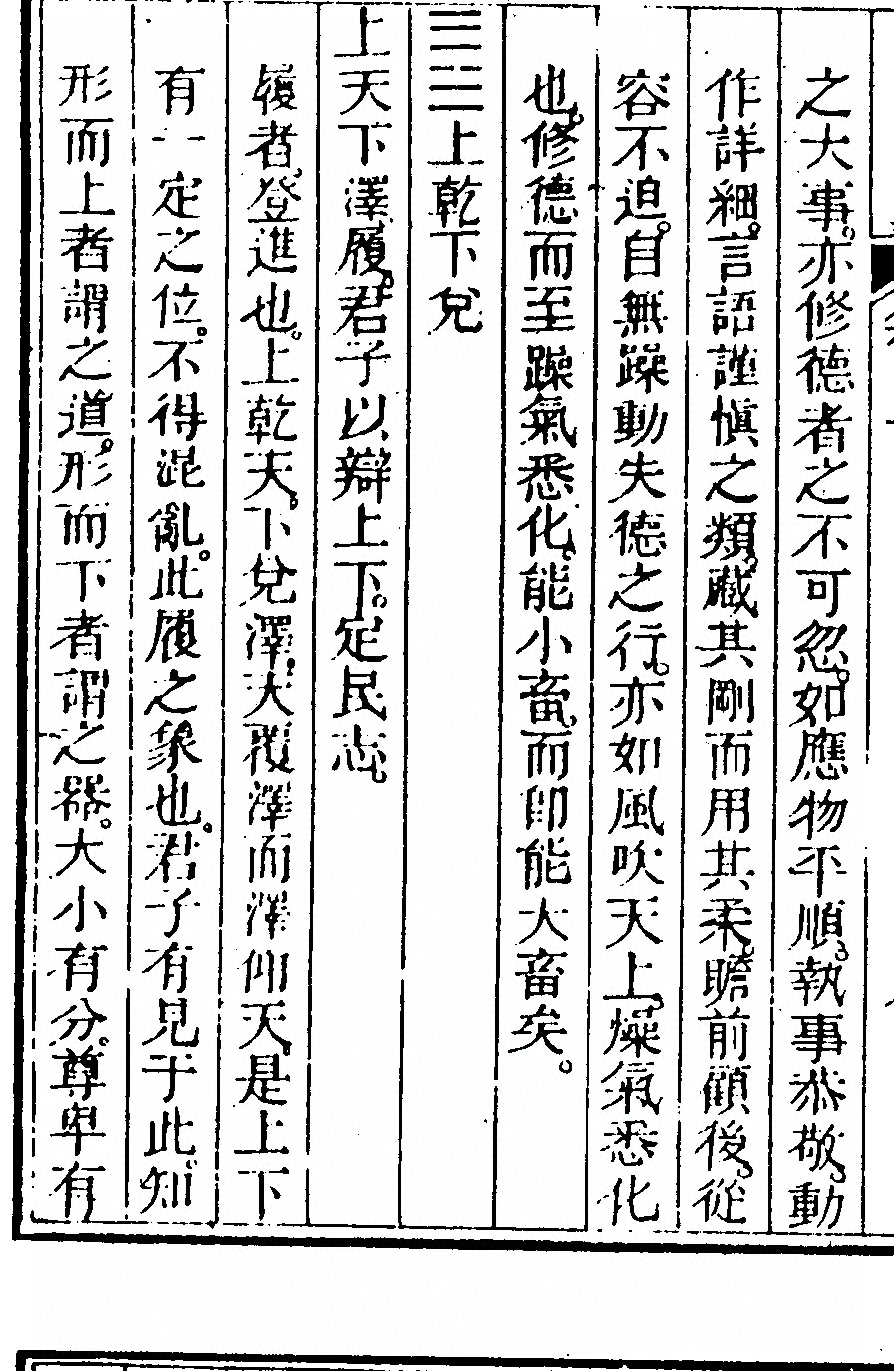 之大事。亦修德者之不可忽。如應物平順。執事恭敬。動
作詳細。言語謹慎之類。藏其剛而用其柔。瞻前顧後。從
容不迫。自無躁動失德之行。亦如風吹天上。燥氣悉化
也。修德而至躁氣悉化。能小畜。而即能大畜矣。
上乾下兌
上天下澤履。君子以辯上下。定民志。
履者。登進也。上乾天。下兌澤。天覆澤而澤仰天。是上下
有一定之位。不得混亂。此履之象也。君子有見于此。知
形而上者謂之道。形而下者謂之器。大小有分。尊卑有